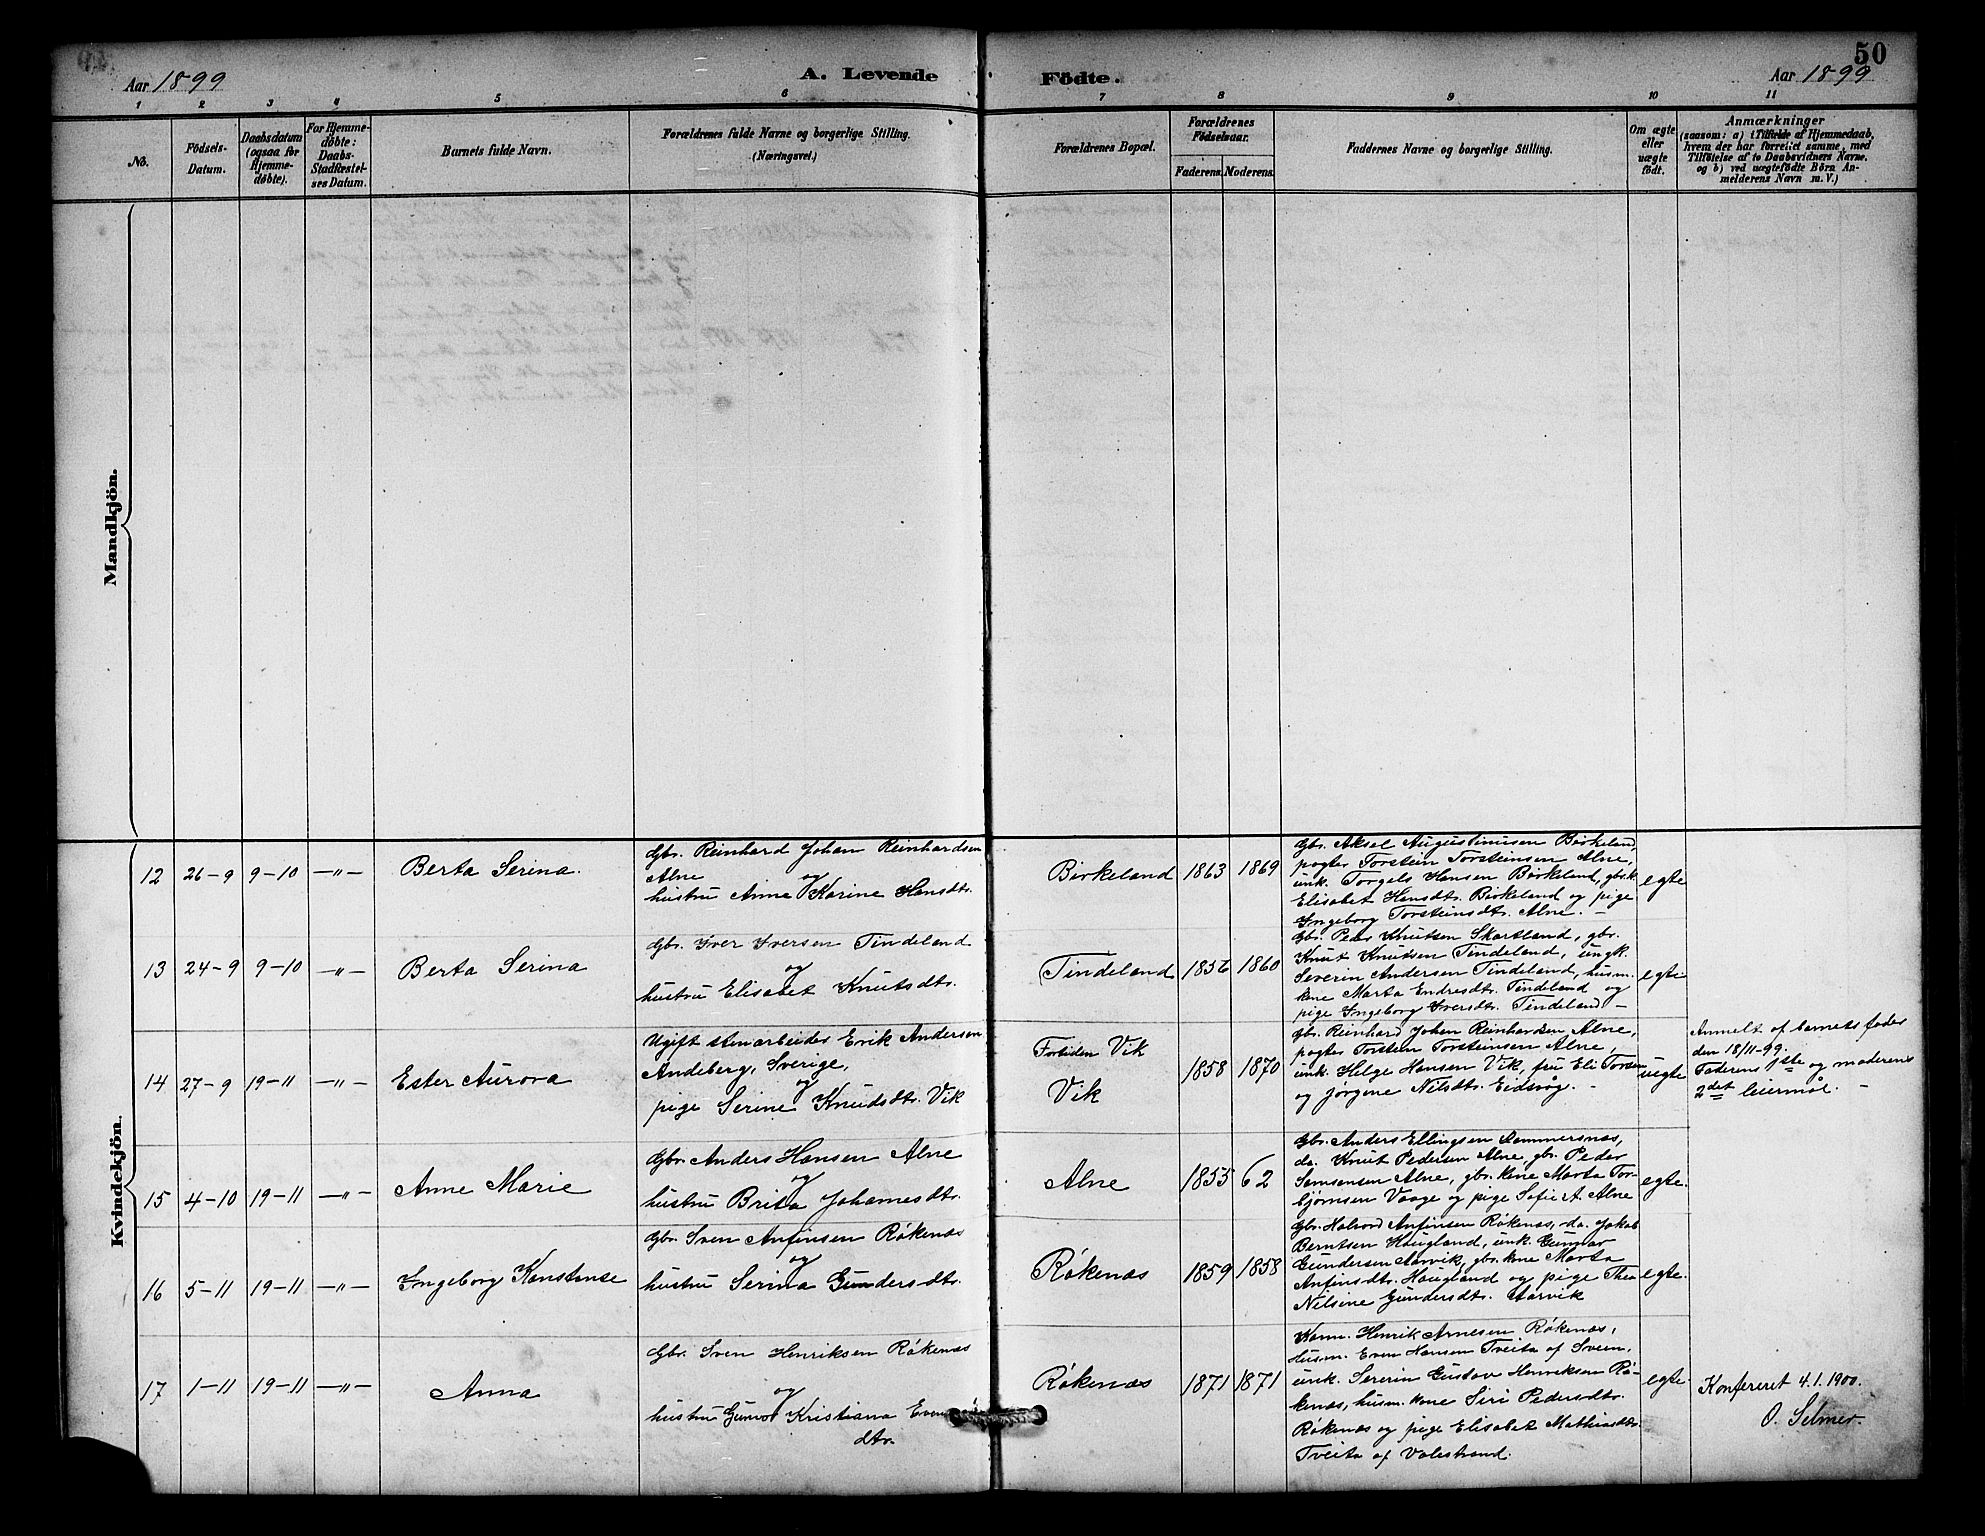 50
Aar 1899
A. Levende
Födte.
Aar 1899
1 2 3 4 5 6 7 8 9 10 11
No.
Födsels-
Datum.
Daabsdatum
(ogsaa for
Hjemme-
döbte).
For Hjemme-
döbte:
Daabs-
Stadfæstel-
ses Datum.
Barnets fulde Navn.
Forældrenes fulde Navne og borgerlige Stilling.
(Næringsvei.)
Forældrenes Bopæl.
Forældrenes
Födselsaar.
Faderens. Moderens.
Faddernes Navne og borgerlige Stilling.
Om ægte
eller
uægte
födt.
Anmærkninger
(saasom: a) i Tilfælde af Hjemmedaab,
hvem der har forrettet samme, med
Tilföielse af to Daabsvidners Navne,
og b) ved uægtefödte Börn An-
melderens Navn m. V.)
Mandkjön.
Kvindekjön.
12 26-9 9-10 —"—
Berta Serina.
Gbr. Reinhard Johan Reinhardsen
Alne
og
hustru Anne Karine Hansdtr.
Birkeland 1863 1869
Gbr. Aksel Augustinusen Birkeland
pagter Torstein Torsteinsen Alne,
unk. Torgels Hansen Birkeland, gbr.k.
Elisabet Hansdtr. Birkeland og pige
Ingeborg Torsteinsdtr. Alne. —
egte
13 24-9 9-10 —"—
Berta Serina
Gbr. Iver Iversen Tindeland
og
hustru Elisabet Knutsdtr.
Tindeland 1856 1860
Gbr. Peder Knutsen Skartland, gbr.
Knut Knutsen Tindeland, ungk.
Severin Andersen Tindeland, husm.
kone Marta Endresdtr. Tindeland og
pige Ingeborg Iversdtr. Tindeland —
egte
14 27-9 19-11 —"—
Ester Aurora
Ugift stenarbeider Erik Andersen
Andeberg, Sverige,
og
pige Serine Knudsdtr. Vik
Fortiden Vik
Vik
1858 1870
Gbr. Reinhard Johan Reinhardsen Alne,
pagter Torstein Torsteinsen Alne,
unk. Helge Hansen Vik, fru Eli Torsen
og Jørgine Nilsdtr. Eidsvåg. —
uegte
Anmelt af barnets fader
den 18/11-99.
Faderens 1ste og moderens
2det leiermål. —
15 4-10 19-11 —"—
Anne Marie
Gbr. Anders Hansen Alne
og
hustru Brita Johannesdtr.
Alne 1855 62
Gbr. Anders Ellingsen Rommersnæs,
do. Knut Pedersen Alne, gbr. Peder
Samsonsen Alne, gbr. kone Marta Tor-
bjørnsen Vaage og pige Sofie A. Alne
egte.
16 5-11 19-11 —"—
Ingeborg Konstanse
Gbr. Sven Anfinsen Røkenæs
og
hustru Serina Gundersdtr.
Røkenæs 1859 1858
Gbr. Halvord Anfinsen Røkenæs, do. Jakob
Berntsen Haugland, unk. Gunnar
Gundersen Aarvik, gbr. kone Marta
Anfinsdtr. Haugland og pige Thea
Nilsine Gundersdtr. Aarvik
egte.
17 1-11 19-11 —"—
Anna
Gbr. Sven Henriksen Røkenæs
og
hustru Gunvor Kristiana Evens
dtr.
Røkenæs 1871 1871
Kaarm. Henrik Arnesen Røkenæs,
Husm. Even Hansen Tveita af Sveen,
unk. Severin Gustav Henriksen Rø-
kenæs, husm. kone Siri Pedersdtr.
Røkenæs og pige Elisabet Mathiasdtr.
Tveita af Valestrand.
egte.
Konfereret 4.1.1900.
O. Selmer.